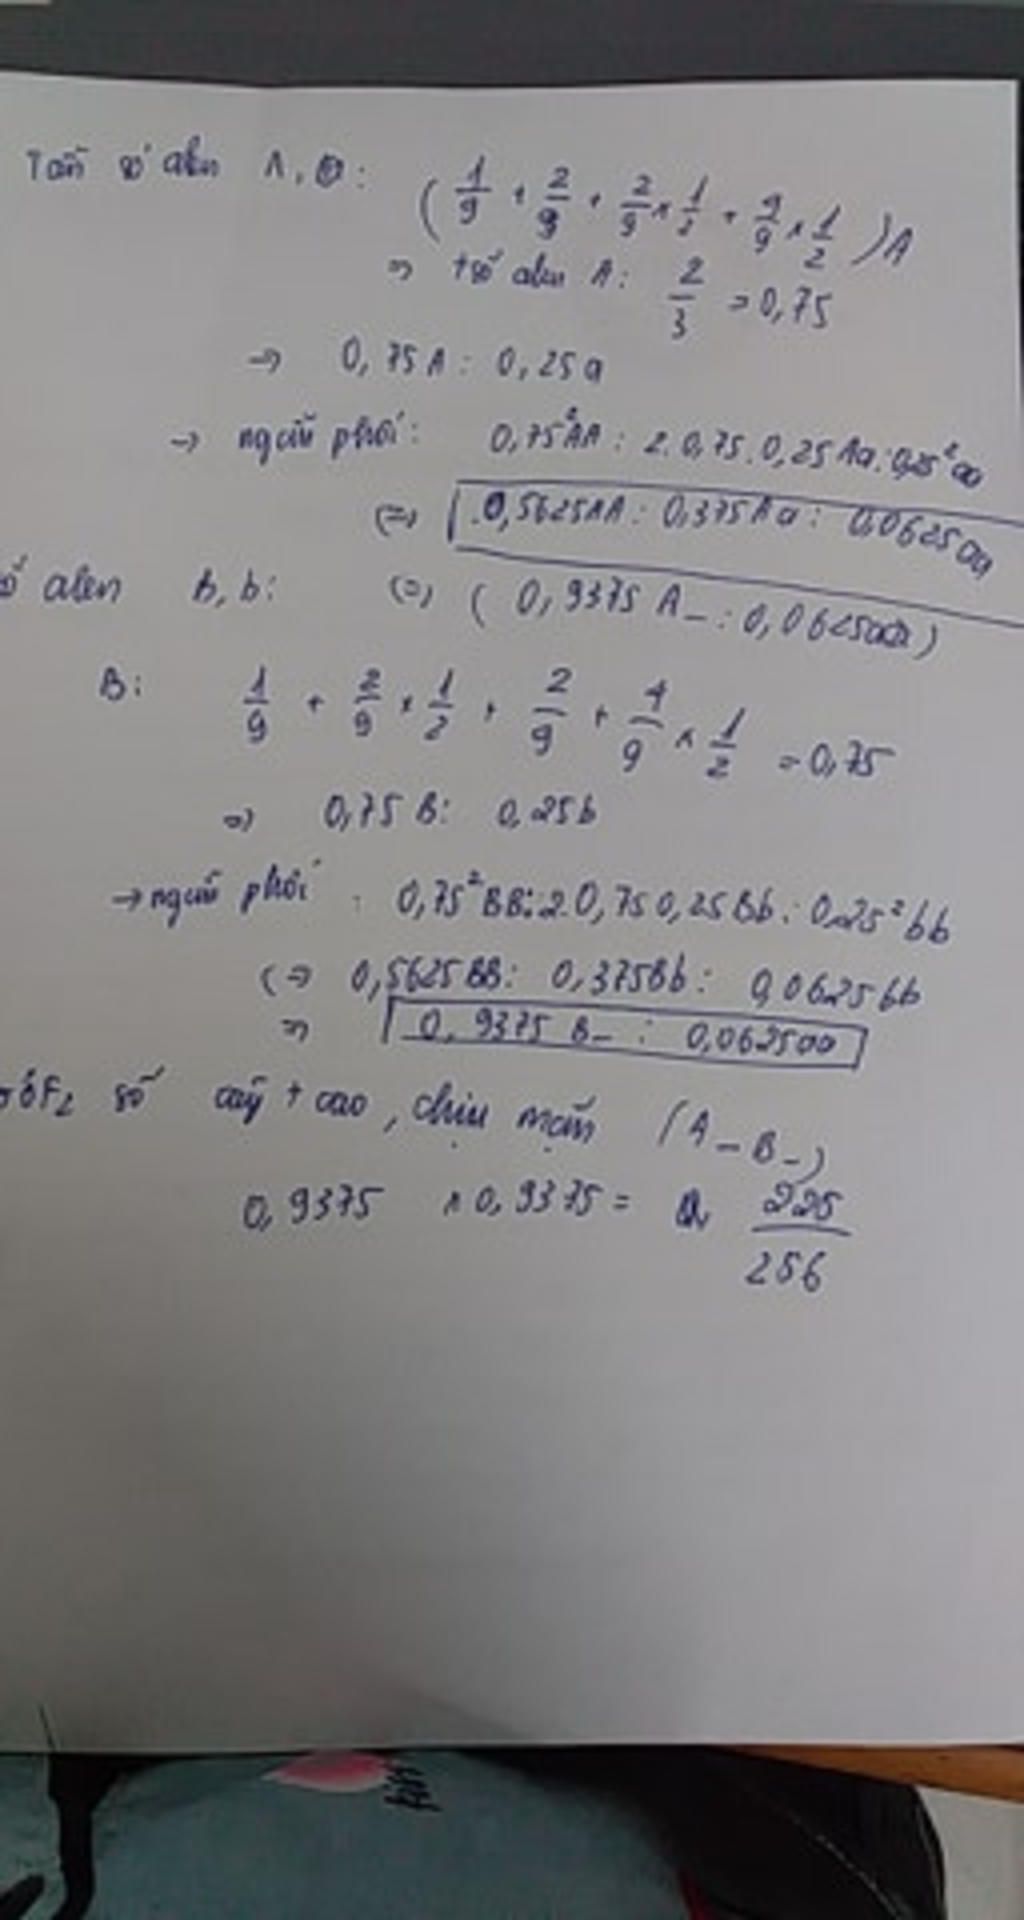 Tần số alen A, a:
( 1/9 + 2/9 + 2/9 × 1/2 + 4/9 × 1/2 ) A
=> tsố alen A: 2/3 = 0,75
→ 0,75A : 0,25a
→ ngẫu phối: 0,75²AA : 2.0,75.0,25Aa : 0,25²aa
(=) 0,5625AA : 0,375Aa : 0,0625aa
số alen B, b: (=) ( 0,9375 A_ : 0,0625aa )
B: 1/9 + 2/9 × 1/2 + 2/9 + 4/9 × 1/2 = 0,75
=) 0,75 B : 0,25b
→ ngẫu phối : 0,75²BB : 2.0,75 0,25Bb : 0,25²bb
(=> 0,5625BB : 0,375Bb : 0,0625bb
=> 0,9375 B_ : 0,0625aa
F₂ số cây t cao, chịu mặn (A_B_)
0,9375 × 0,9375 = 225/256